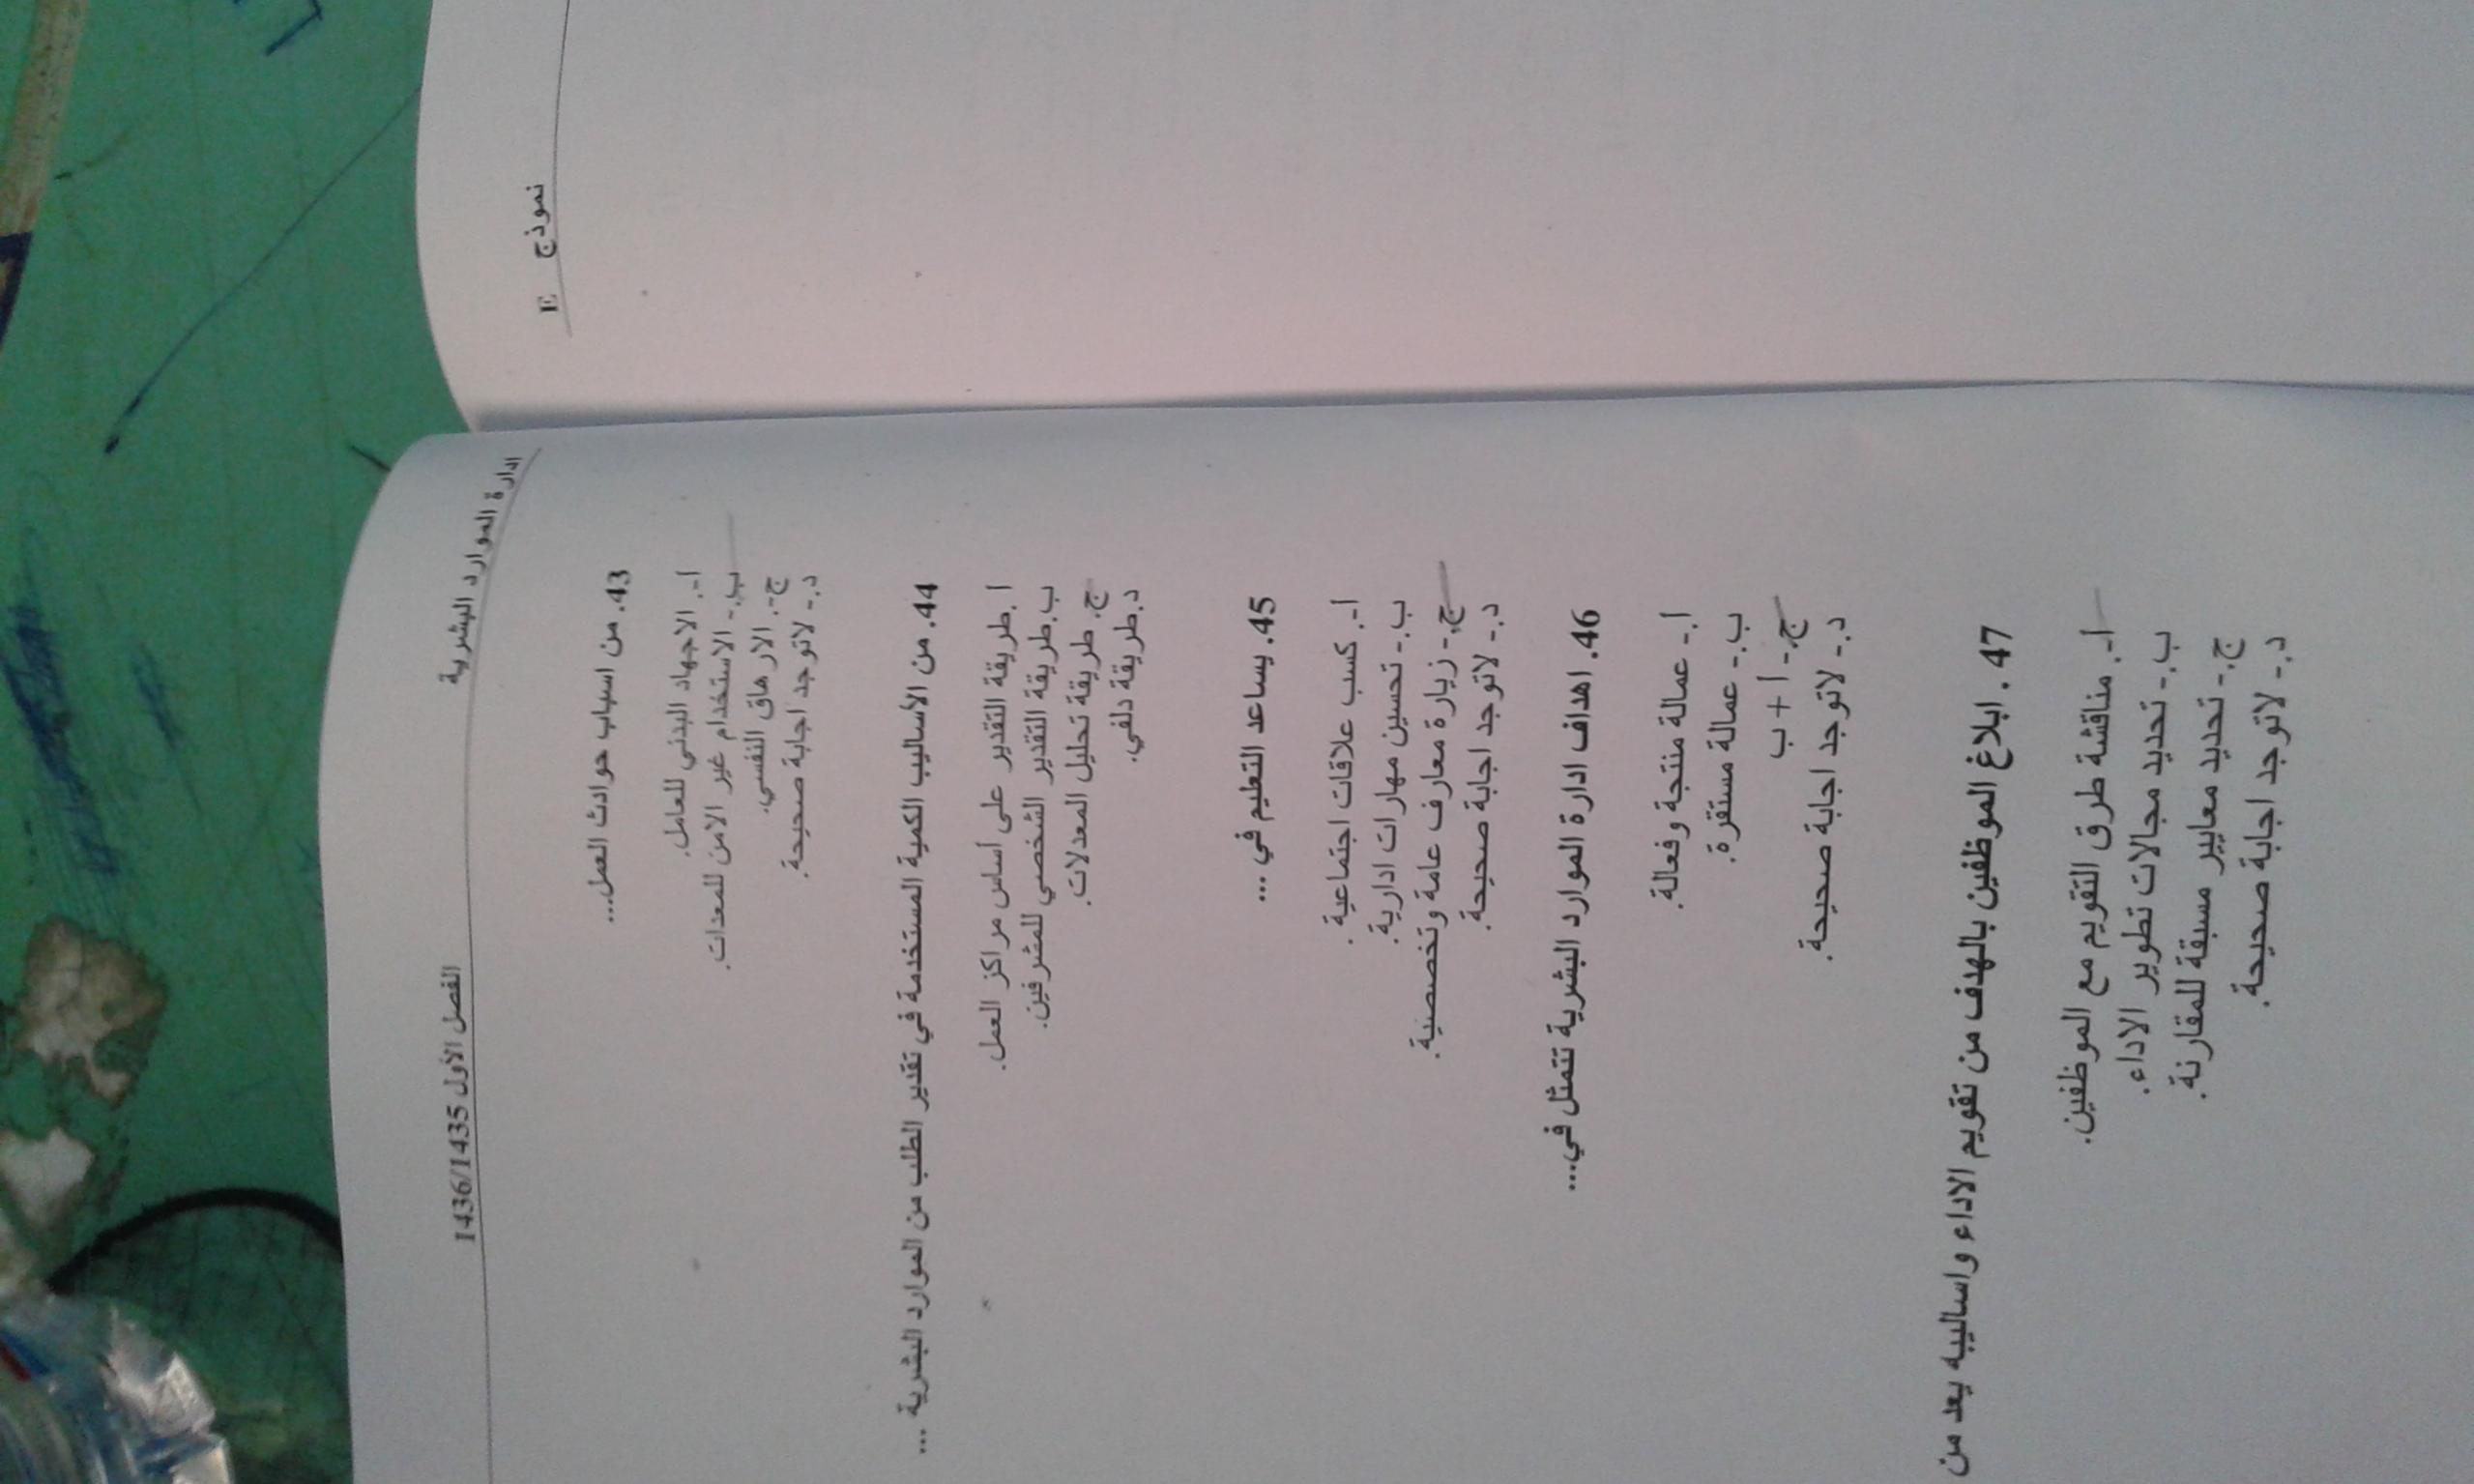 نموذج E
ادارة الموارد البشرية
الفصل الأول 1436/1435
43. من اسباب حوادث العمل...
ا-. الاجهاد البدني للعامل.
ب.- الاستخدام غير الامن للمعدات.
ج-. الارهاق النفسي.
د.- لاتوجد اجابة صحيحة.
44. من الأساليب الكمية المستخدمة في تقدير الطلب من الموارد البشرية ...
ا.طريقة التقدير على أساس مراكز العمل.
ب.طريقة التقدير الشخصي للمشرفين.
ج. طريقة تحليل المعدلات.
د.طريقة دلفي.
45. يساعد التعليم في ...
ا-. كسب علاقات اجتماعية .
ب.- تحسين مهارات ادارية.
ج.- زيارة معارف عامة وتخصصية.
د.- لاتوجد اجابة صحيحة.
46. اهداف ادارة الموارد البشرية تتمثل في...
ا.- عمالة منتجة وفعالة.
ب.- عمالة مستقرة.
ج.- ا + ب
د.- لاتوجد اجابة صحيحة.
47 . ابلاغ الموظفين بالهدف من تقويم الاداء واساليبه يعد من
ا-. مناقشة طرق التقويم مع الموظفين.
ب.- تحديد مجالات تطوير الاداء.
ج.- تحديد معايير مسبقة للمقارنة.
د.- لاتوجد اجابة صحيحة.